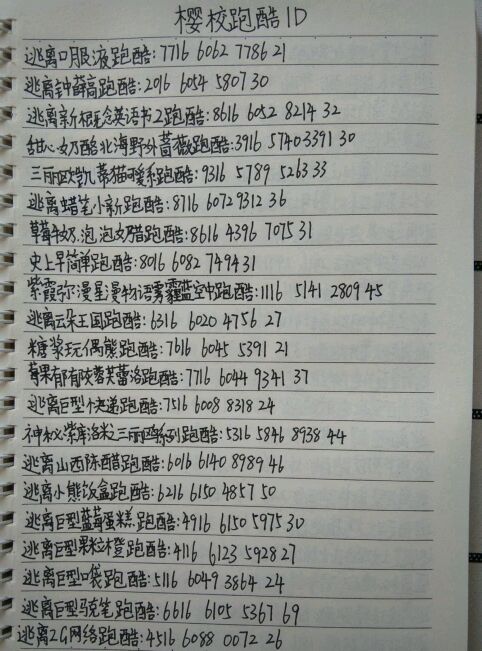 樱校跑酷ID
逃离口服液跑酷:7716 6062 7786 21
逃离钟薛高跑酷:2016 6054 5807 30
逃离新概念英语书2跑酷:8616 6052 8214 32
甜心奶酪北海野外蔷薇跑酷:3916 5740 3391 30
三丽欧凯蒂猫可爱系跑酷:9316 5789 5263 33
逃离蜡笔小新跑酷:8716 6072 9312 36
草莓牛奶泡泡奶猎跑酷:8616 4396 7075 31
史上早简单跑酷:8016 6082 7494 31
紫霞弥漫星漫物语雾霾蓝空中跑酷:1116 5141 2809 45
逃离云朵王国跑酷:6316 6020 4756 27
糖浆玩偶熊跑酷:7616 6045 5391 21
莓果郁郁陵蓉芙蕾洛跑酷:7716 6044 9341 37
逃离巨型快递跑酷:7516 6008 8318 24
神秘紫库洛米三丽鸥系列跑酷:5316 5846 8938 44
逃离山西陈醋跑酷:6016 6140 8989 46
逃离小熊饭盒跑酷:6216 6150 4857 50
逃离巨型蓝莓蛋糕跑酷:4916 6150 5975 30
逃离巨型果粒橙跑酷:4116 6123 5928 27
逃离巨型口袋跑酷:5116 6049 3864 24
逃离巨型马克笔跑酷:6616 6105 5367 69
逃离2G网络跑酷:4516 6088 0072 26